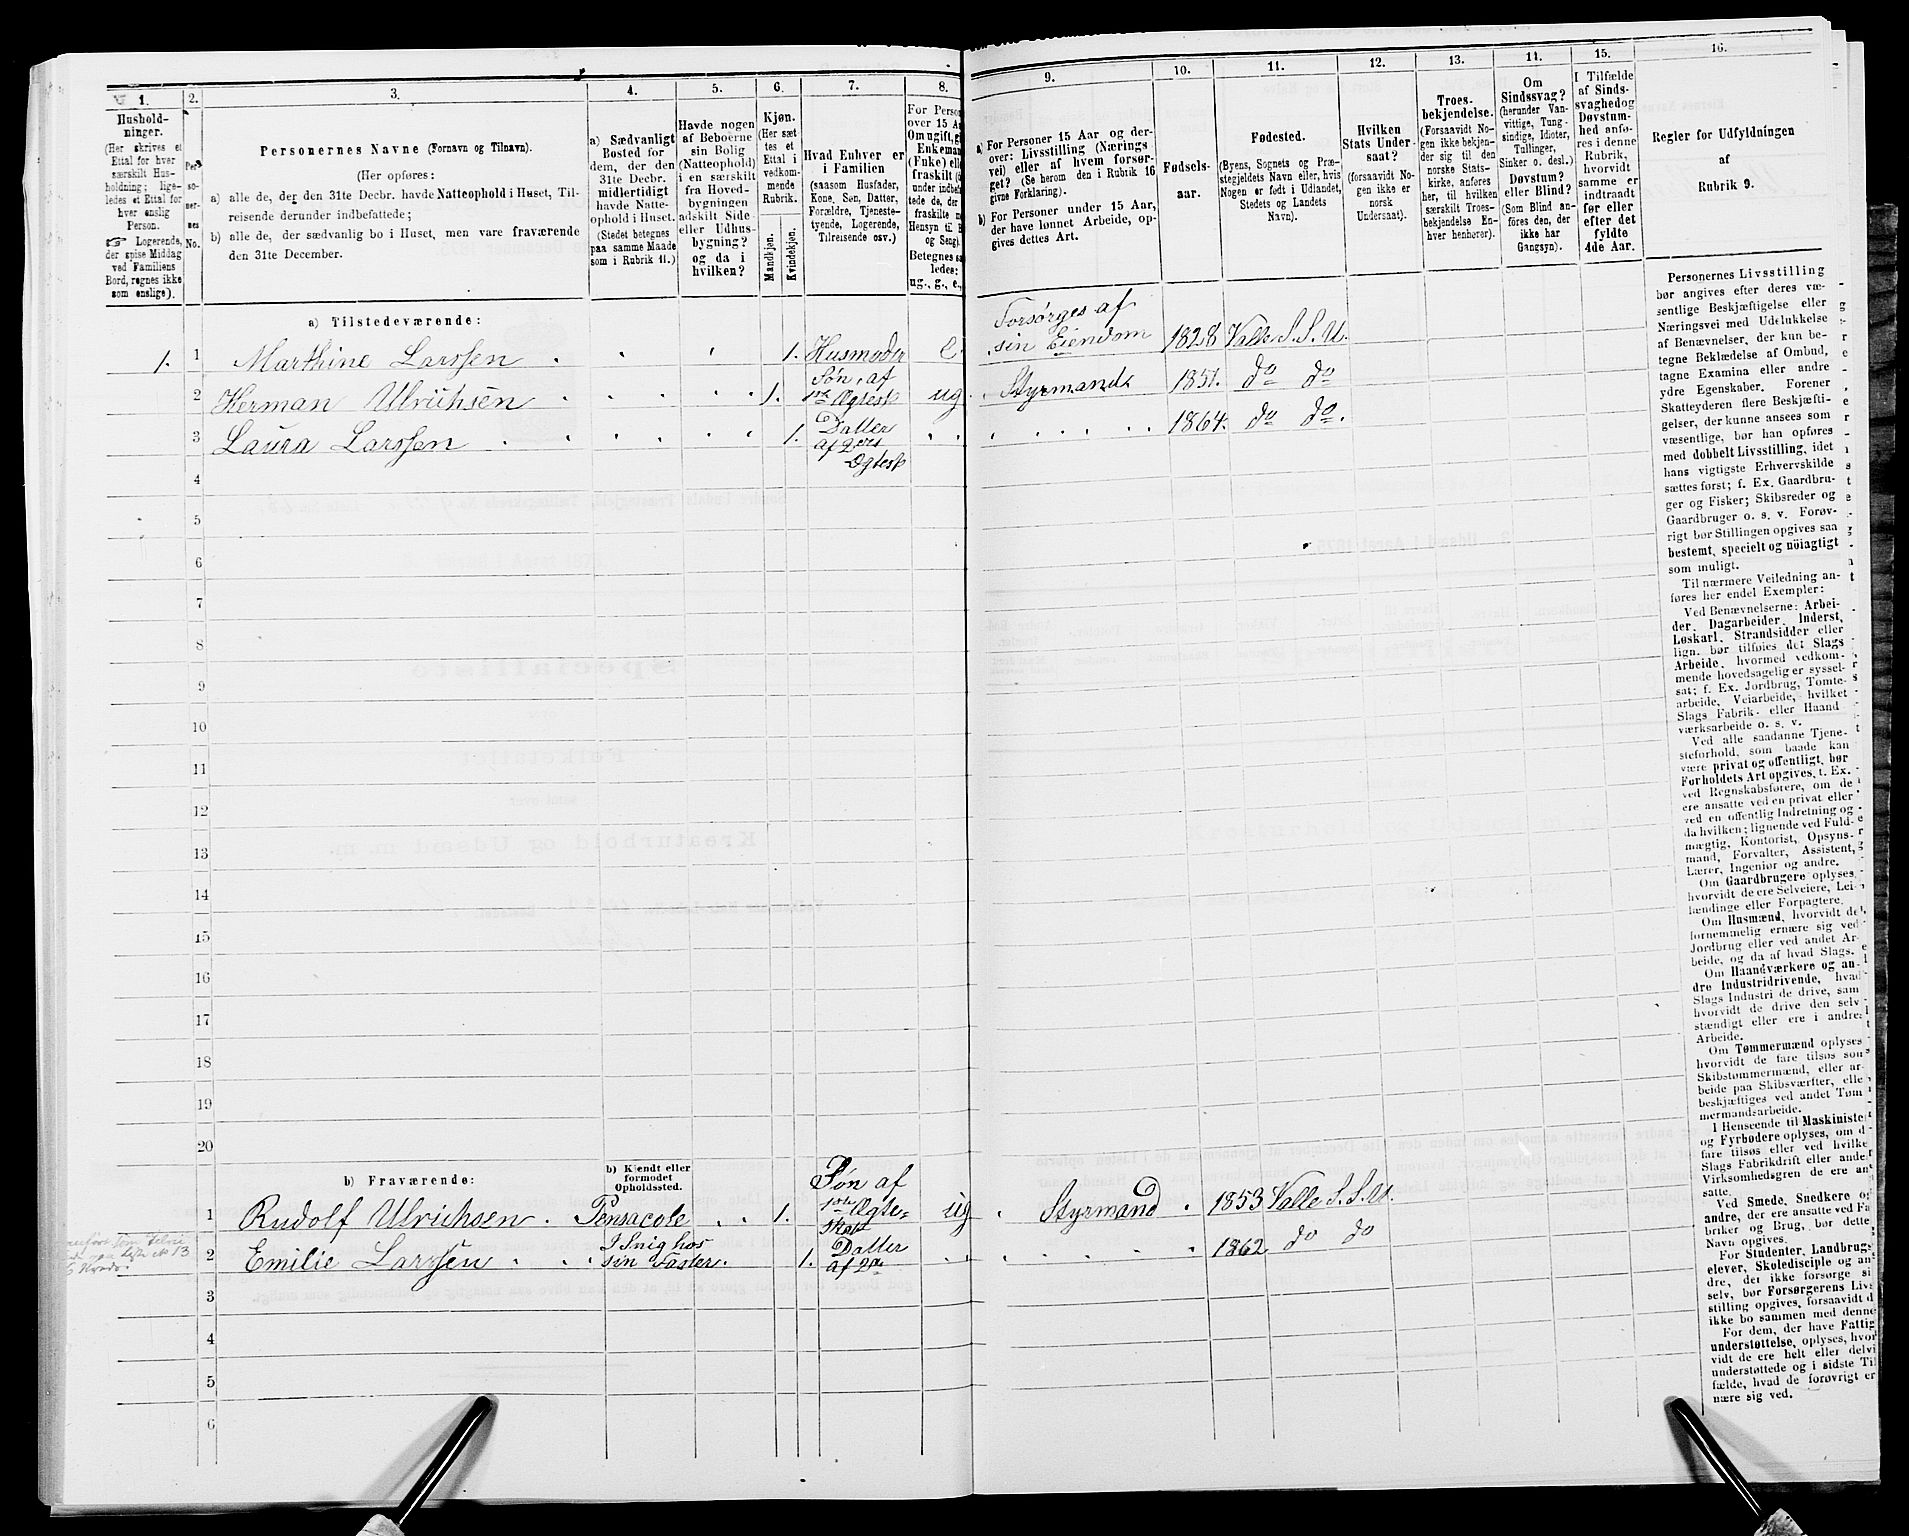 1.
Hushold-
ninger.
(Her skrives et
Ettal for hver
særskilt Hus-
holdning; lige-
ledes et Ettal for
hver enslig
Person.
Logerende,
der spise Middag
ved Familiens
Bord, regnes ikke
som enslige).
2.
Per-
so-
ner-
nes
No.
3.
Personernes Navne (Fornavn og Tilnavn).
(Her opføres:
a) alle de, der den 31te Decbr. havde Natteophold i Huset, Til-
reisende derunder indbefattede;
b) alle de, der sædvanlig bo i Huset, men vare fraværende
den 31te December.
4.
a) Sædvanligt
Bosted for
dem, der den
31te Decbr.
midlertidigt
havde Natte-
ophold i Huset.
(Stedet betegnes
paa samme Maade
som i Rubrik 11.)
5.
Havde nogen
af Beboerne
sin Bolig
(Natteophold)
i en særskilt
fra Hoved-
bygningen
adskilt Side-
eller Udhus-
bygning?
og da i
hvilken?
6.
Kjøn.
(Her sæt-
tes et
Ettal i
vedkom-
mende
Rubrik.
Mandkjøn.
Kvindekjøn.
7.
Hvad Enhver er
i Familien
(saasom Husfader,
Kone, Søn, Datter,
Forældre, Tjeneste-
tyende, Logerende,
Tilreisende osv.)
8.
For Person
over 15 Aa
Om ugift, gi
Enkeman
(Enke) elle
fraskilt (
under indbe
tede de,
fraskilte m
Hensyn til B
og Seng).
Betegnes sa
ledes:
ug., g., e.,
9.
a) For Personer 15 Aar og der-
over: Livsstilling (Nærings-
vei) eller af hvem forsør-
get? (Se herom den i Rubrik 16
givne Forklaring).
b) For Personer under 15 Aar,
der have lønnet Arbeide, op-
gives dettes Art.
10.
Fødsels-
aar.
11.
Fødested.
(Byens, Sognets og Præ-
stegjeldets Navn eller, hvis
Nogen er født i Udlandet,
Stedets og Landets
Navn).
12.
Hvilken
Stats Under-
saat?
(forsaavidt No-
gen ikke er
norsk
Undersaat).
13.
Troes-
bekjendelse.
(Forsaavidt No-
gen ikke bekjen-
der sig til den
norske Stats-
kirke, anføres
særskilt Troes-
bekjendelse En-
hver henhører).
14.
Om
Sindssvag?
(herunder Van-
vittige, Tung-
sindige, Idioter,
Tullinger,
Sinker o. desl.)
Døvstum?
eller Blind?
(Som Blind an-
føres den, der
ikke har
Gangsyn).
15.
I Tilfælde
af Sinds-
svaghed og
Døvstum-
hed anfø-
res i denne
Rubrik,
hvorvidt
samme er
indtraadt
før eller
efter det
fyldte
4de Aar.
16.
Regler for Udfyldningen
af
Rubrik 9.
a) Tilstedeværende:
1. 1 Marthine Larssen 1. Husmoder e. Forsørges af
sin Eiendom 1828 Valle S. S. U.
2 Herman Ulrichsen 1. Søn af
1ste Ægtesk ug. Styrmand 1851. do do
3 Laura Larssen 1. Datter
af 2det
Ægtesk 1864. do do.
4
5
6
7
8
9
10
11
12
13
14
15
16
17
18
19
20
b) Fraværende:
b) Kjendt eller
formodet
Opholdssted.
1 Rudolf Ulrichsen Pensacole 1. Søn af
1ste Ægte-
skab ug Styrmand 1853 Valle S. S. U.
2 Emilie Larssen I Snig hos
sin Faster. 1. Datter
af 2det 1862 do do
3
4
5
6
Personernes Livsstilling
bør angives efter deres væ-
sentlige Beskjæftigelse eller
Næringsvei med Udelukkelse
af Benævnelser, der kun be-
tegne Beklædelse af Ombud,
tagne Examina eller andre
ydre Egenskaber. Forener
Skatteyderen flere Beskjæfti-
gelser, der kunne ansees som
væsentlige, bør han opføres
med dobbelt Livsstilling, idet
hans vigtigste Erhvervskilde
sættes først; f. Ex. Gaardbru-
ger og Fisker; Skibsreder og
Gaardbruger o. s. v. Forøv-
rigt bør Stillingen opgives saa
bestemt, specielt og nöiagtigt
som muligt.
Til nærmere Veiledning an-
føres her endel Exempler:
Ved Benævnelserne: Arbei-
der, Dagarbeider, Inderst,
Løskarl, Strandsidder eller
lign. bør tilføies det Slags
Arbeide, hvormed vedkom-
mende hovedsagelig er syssel-
sat; f. Ex. Jordbrug, Tomte-
arbeide, Veiarbeide, hvilket
Slags Fabrik- eller Haand-
værksarbeide o. s. v.
Ved alle saadanne Tjene-
steforhold, som baade kan
være privat og offentligt, bør
Forholdets Art opgives, t. Ex.
ved Regnskabsførere, om de
ere ansatte ved en privat eller
ved en offentlig Indretning og
da hvilken; lignende ved Fuld-
mægtig, Kontorist, Opsyns-
mand, Forvalter, Assistent,
Lærer, Ingeniør og andre.
Om Gaardbrugere oplyses,
hvorvidt de ere Selveiere, Lei-
lændinge eller Forpagtere.
Om Husmænd, hvorvidt de
fornemmelig ernære sig ved
Jordbrug eller ved andet Ar-
beide, og da af hvad Slags.
Om Haandværkere og an-
dre Industridrivende, hvad
Slags Industri de drive, sam
hvorvidt de drive den selv-
stændigt eller ere i andres
Arbeide.
Om Tømmermænd oplyses
hvorvidt de fare tilsøs som
Skibstømmermænd, eller ar-
beide paa Skibsværfter, elle
beskjæftiges ved andet Tøm
mermandsarbeide.
I Henseende til Maskiniste
og Fyrbødere oplyses, om d
fare tilsøs eller ved hvilke
Slags Fabrikdrift eller ander
Virksomhedsgren de ere an
satte.
Ved Smede, Snedkere o
andre, der ere ansatte ved Fa
briker og Brug, bør dette
Navn opgives.
For Studenter, Landbrug
elever, Skoledisciple og an
dre, der ikke forsørge si
selv, bør Forsørgerens Liv
stilling opgives, forsaavidt d
ikke bo sammen med denne
For dem, der have Fattig
understøttelse, oplyses, hvor
vidt de ere helt eller delvi
understøttede og i sidste Til
fælde, hvad de forøvrigt er
nære sig ved.